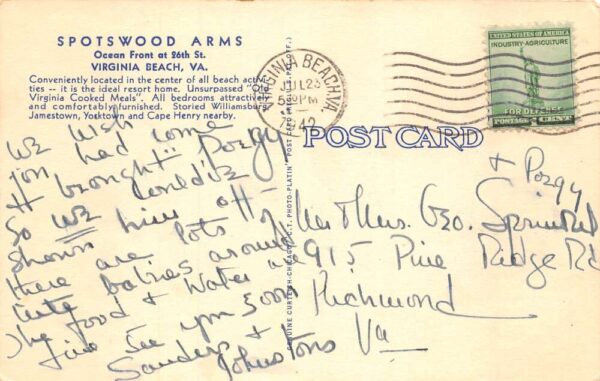 SPOTSWOOD ARMS
Ocean Front at 26th St.
VIRGINIA BEACH, VA.
Conveniently located in the center of all beach activi-
ties -- it is the ideal resort home. Unsurpassed "Old
Virginia Cooked Meals". All bedrooms attractively
and comfortably furnished. Storied Williamsburg,
Jamestown, Yorktown and Cape Henry nearby.
We wish
you had come
& brought "Pozgy"
so we could've
shown him off -
there are lots of
cute babies around
The food & water are
fine See you soon
Sanders &
Johnstons
POST CARD
VIRGINIA BEACH VA.
JUL 23
5 PM
1942
UNITED STATES OF AMERICA
INDUSTRY-AGRICULTURE
FOR DEFENSE
POSTAGE 1 CENT
& Pozgy
Mr & Mrs. Geo.
915 Pine Ridge Rd
Richmond
Va
GENUINE CURTEICH-CHICAGO "C.T. PHOTO-PLATIN" POST CARD (REG. U.S. PAT. OFF.)